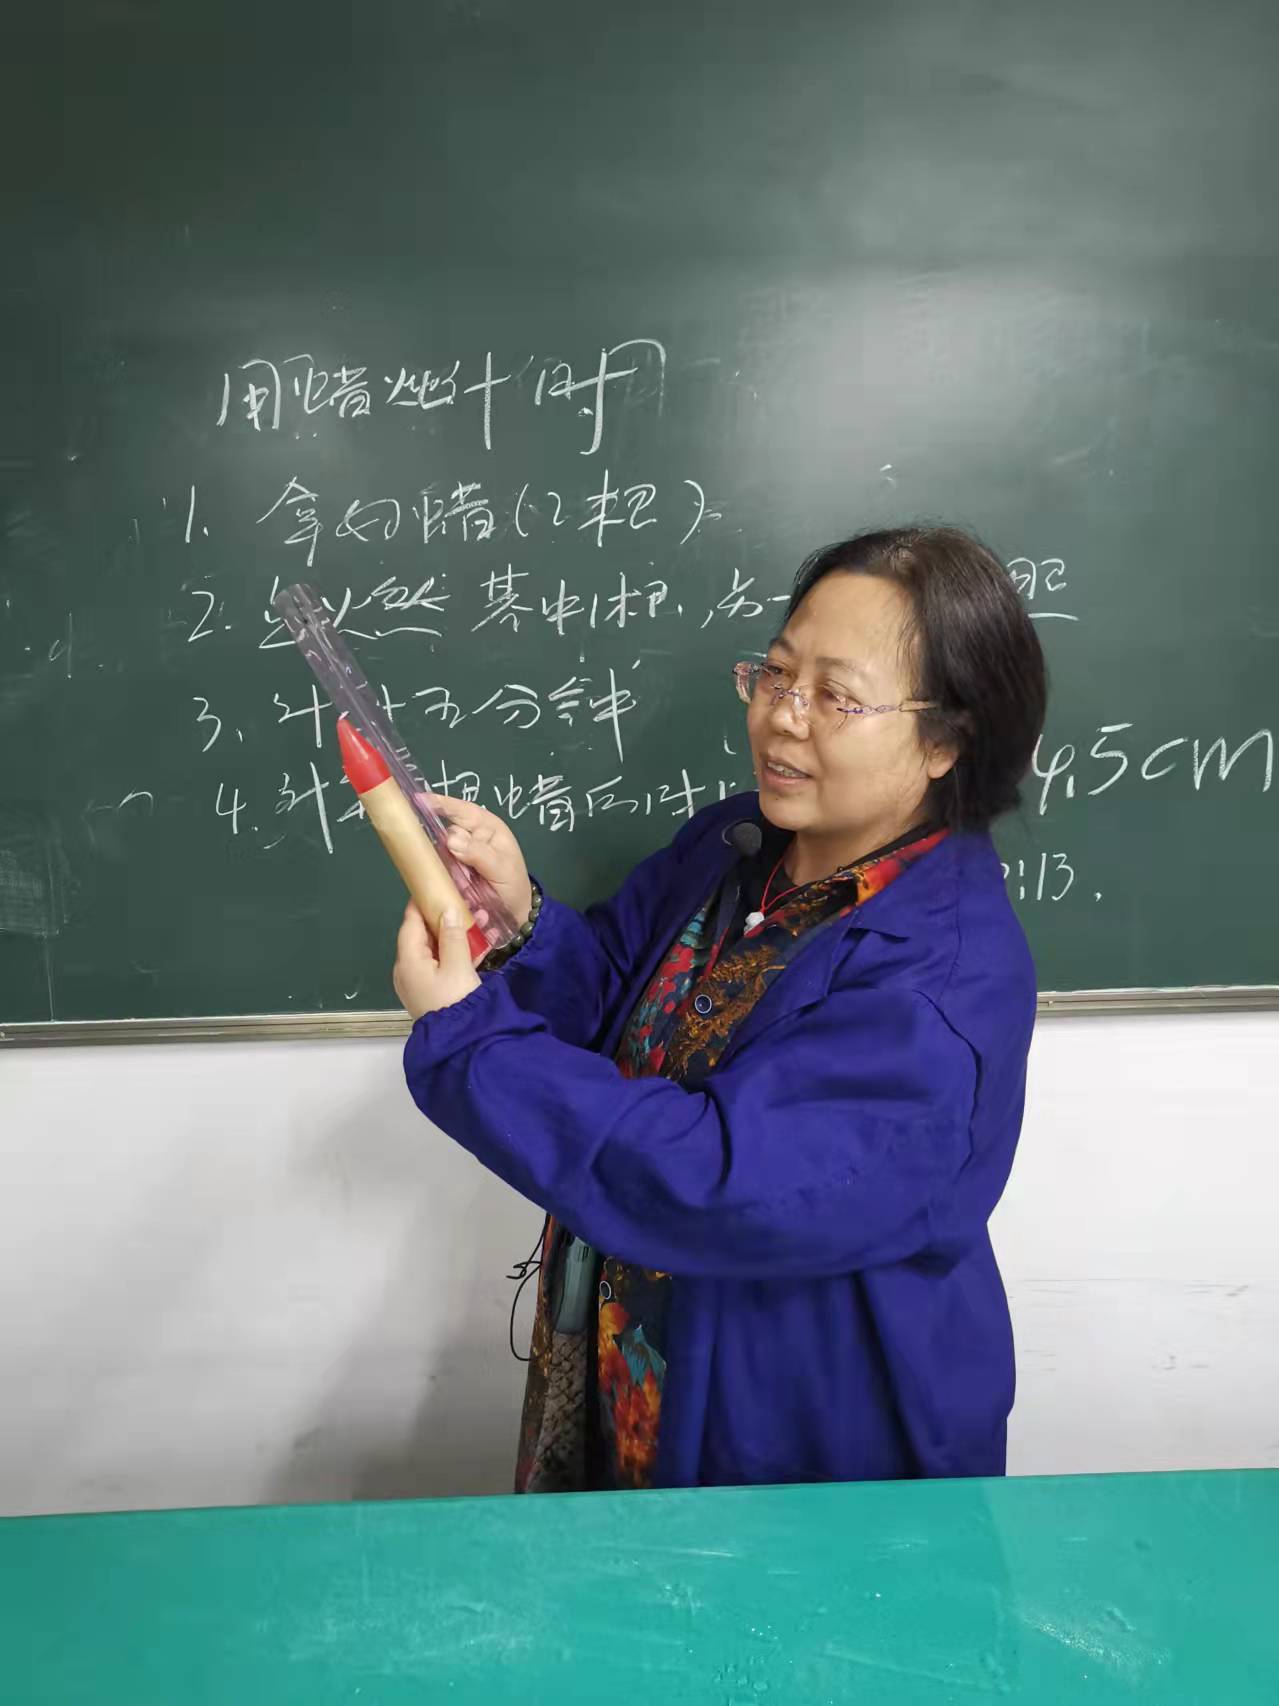 用蜡烛计时
1. 拿好蜡(2根)
2. 点燃 其中1根,另一
3. 计 五分钟
4. 蜡后时
4.5cm
:13.